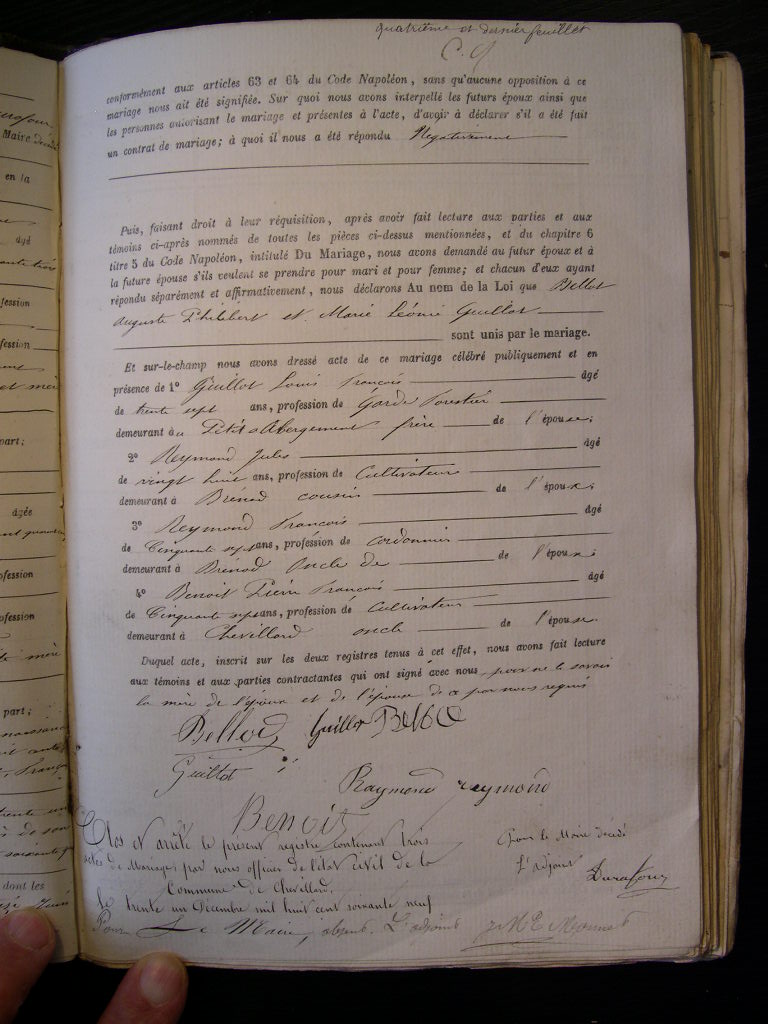 quatrième et dernier feuillet
conformément aux articles 63 et 64 du Code Napoléon, sans qu'aucune opposition à ce
mariage nous ait été signifiée. Sur quoi nous avons interpellé les futurs époux ainsi que
les personnes autorisant le mariage et présentes à l'acte, d'avoir à déclarer s'il a été fait
un contrat de mariage; à quoi il nous a été répondu Négativement
Puis, faisant droit à leur réquisition, après avoir fait lecture aux parties et aux
témoins ci-après nommés de toutes les pièces ci-dessus mentionnées, et du chapitre 6
titre 5 du Code Napoléon, intitulé Du Mariage, nous avons demandé au futur époux et à
la future épouse s'ils veulent se prendre pour mari et pour femme; et chacun d'eux ayant
répondu séparément et affirmativement, nous déclarons Au nom de la Loi que Bellod
Auguste Philibert et Marie Léonie Guillot
sont unis par le mariage.
Et sur-le-champ nous avons dressé acte de ce mariage célébré publiquement et en
présence de 1° Guillot Louis François âgé
de trente sept ans, profession de Garde Forestier
demeurant à Petit Abergement frère de l'épouse;
2° Reymond Jules âgé
de vingt huit ans, profession de Cultivateur
demeurant à Brénod cousin de l'épouse;
3° Reymond François âgé
de Cinquante sept ans, profession de cordonnier
demeurant à Brénod Oncle de de l'épouse;
4° Benoit Pierre François âgé
de Cinquante sept ans, profession de Cultivateur
demeurant à Chevillard oncle de l'épouse
Duquel acte, inscrit sur les deux registres tenus à cet effet, nous avons fait lecture
aux témoins et aux parties contractantes qui ont signé avec nous pour ne le savoir
la mère de l'époux et de l'épouse de ce par nous requis
Bellod Guillot Bellod
Guillot
Raymond reymond
Benoit
Clos et arrêté le present registre contenent trois
actes de Mariage par nous officier de l'état civil de la
Commune de Chevillard.
le trente un Décembre mil huit cent soixante neuf
Pour le Maire décédé
L'adjoint
Durafour
Pour Le Maire, absent. L'adjoint